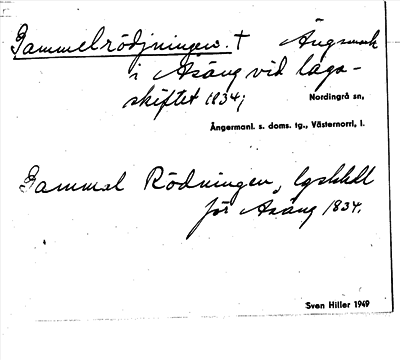 Gammelrödjningen. † Ängsmark
i Åsäng vid laga-
skiftet 1834;
Nordingrå sn,
Ångermanl. s. doms. tg., Västernorrl. l.
Gammal Rödningen, lgskhdl
för Åsäng 1834.
Sven Hiller 1949